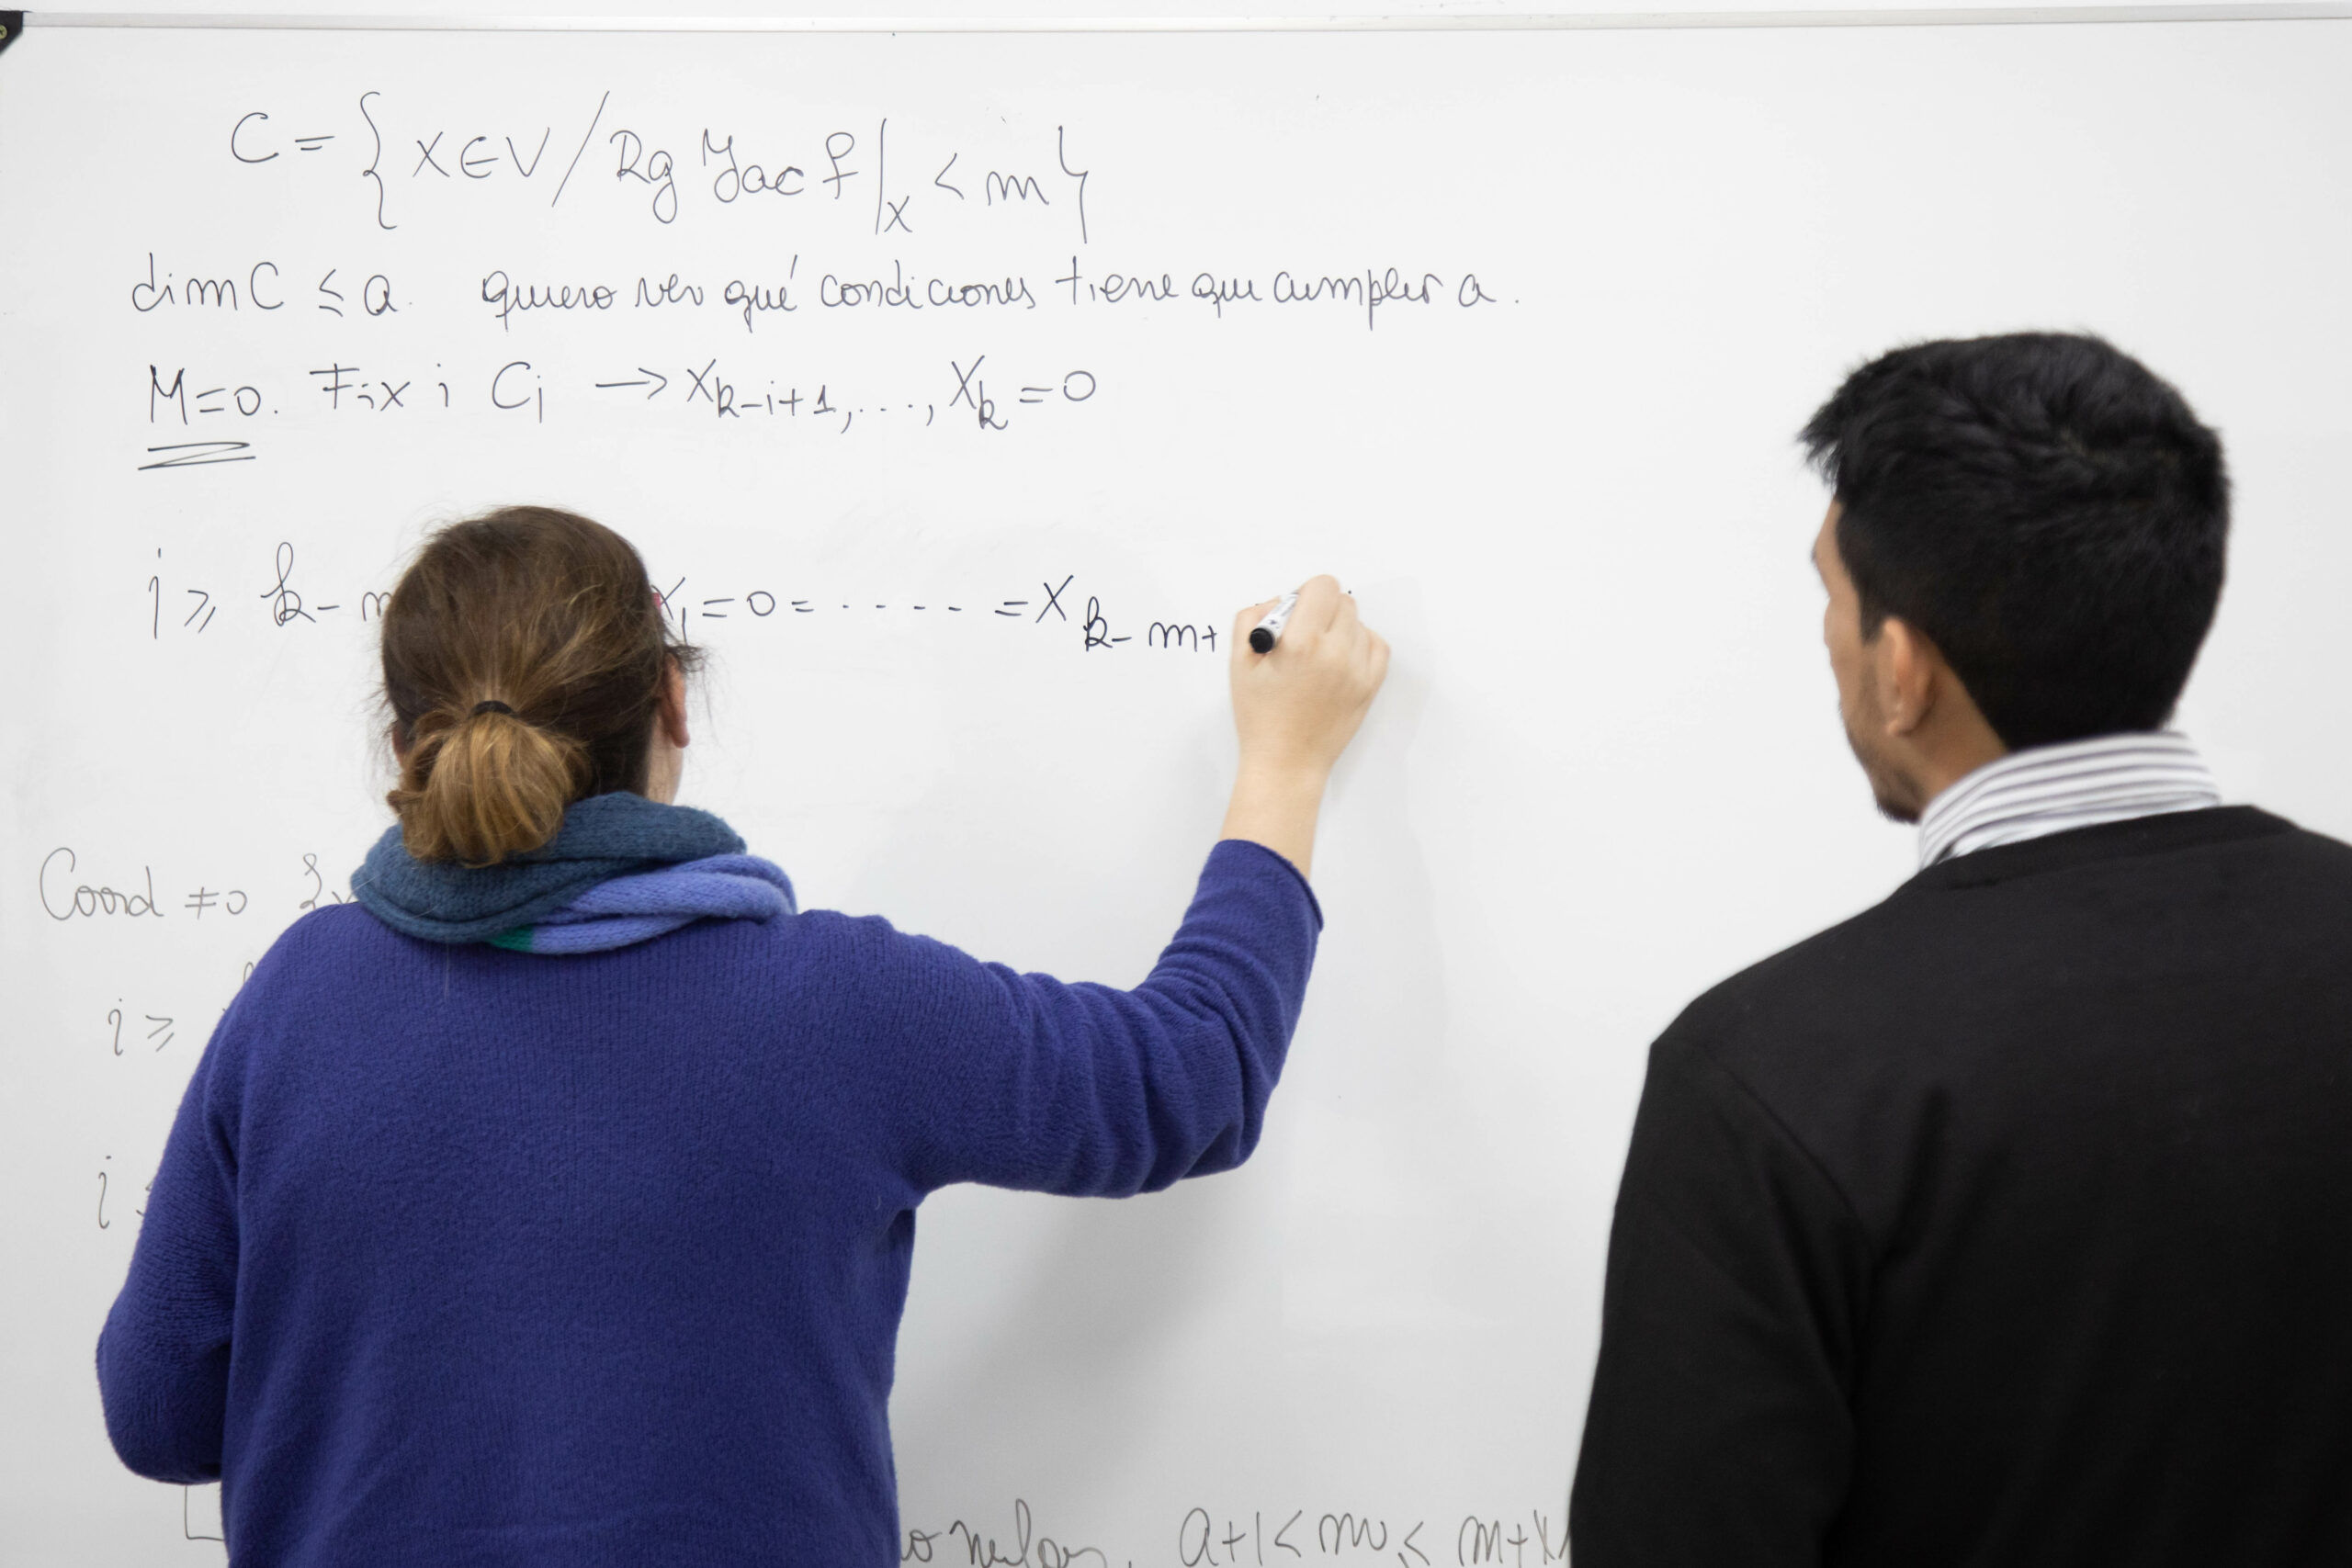 C = { x ∈ V / Rg Jac f |x < m }
dim C ≤ a. quiero ver qué condiciones tiene que cumplir a.
M=0. Fix i Ci → xk-i+1, ..., xk = 0
i ≥ k- m x1 = 0 = - - - - - = xk- m+
Coord ≠ 0 {
i ≥
i
a+1 < m ≤ m+